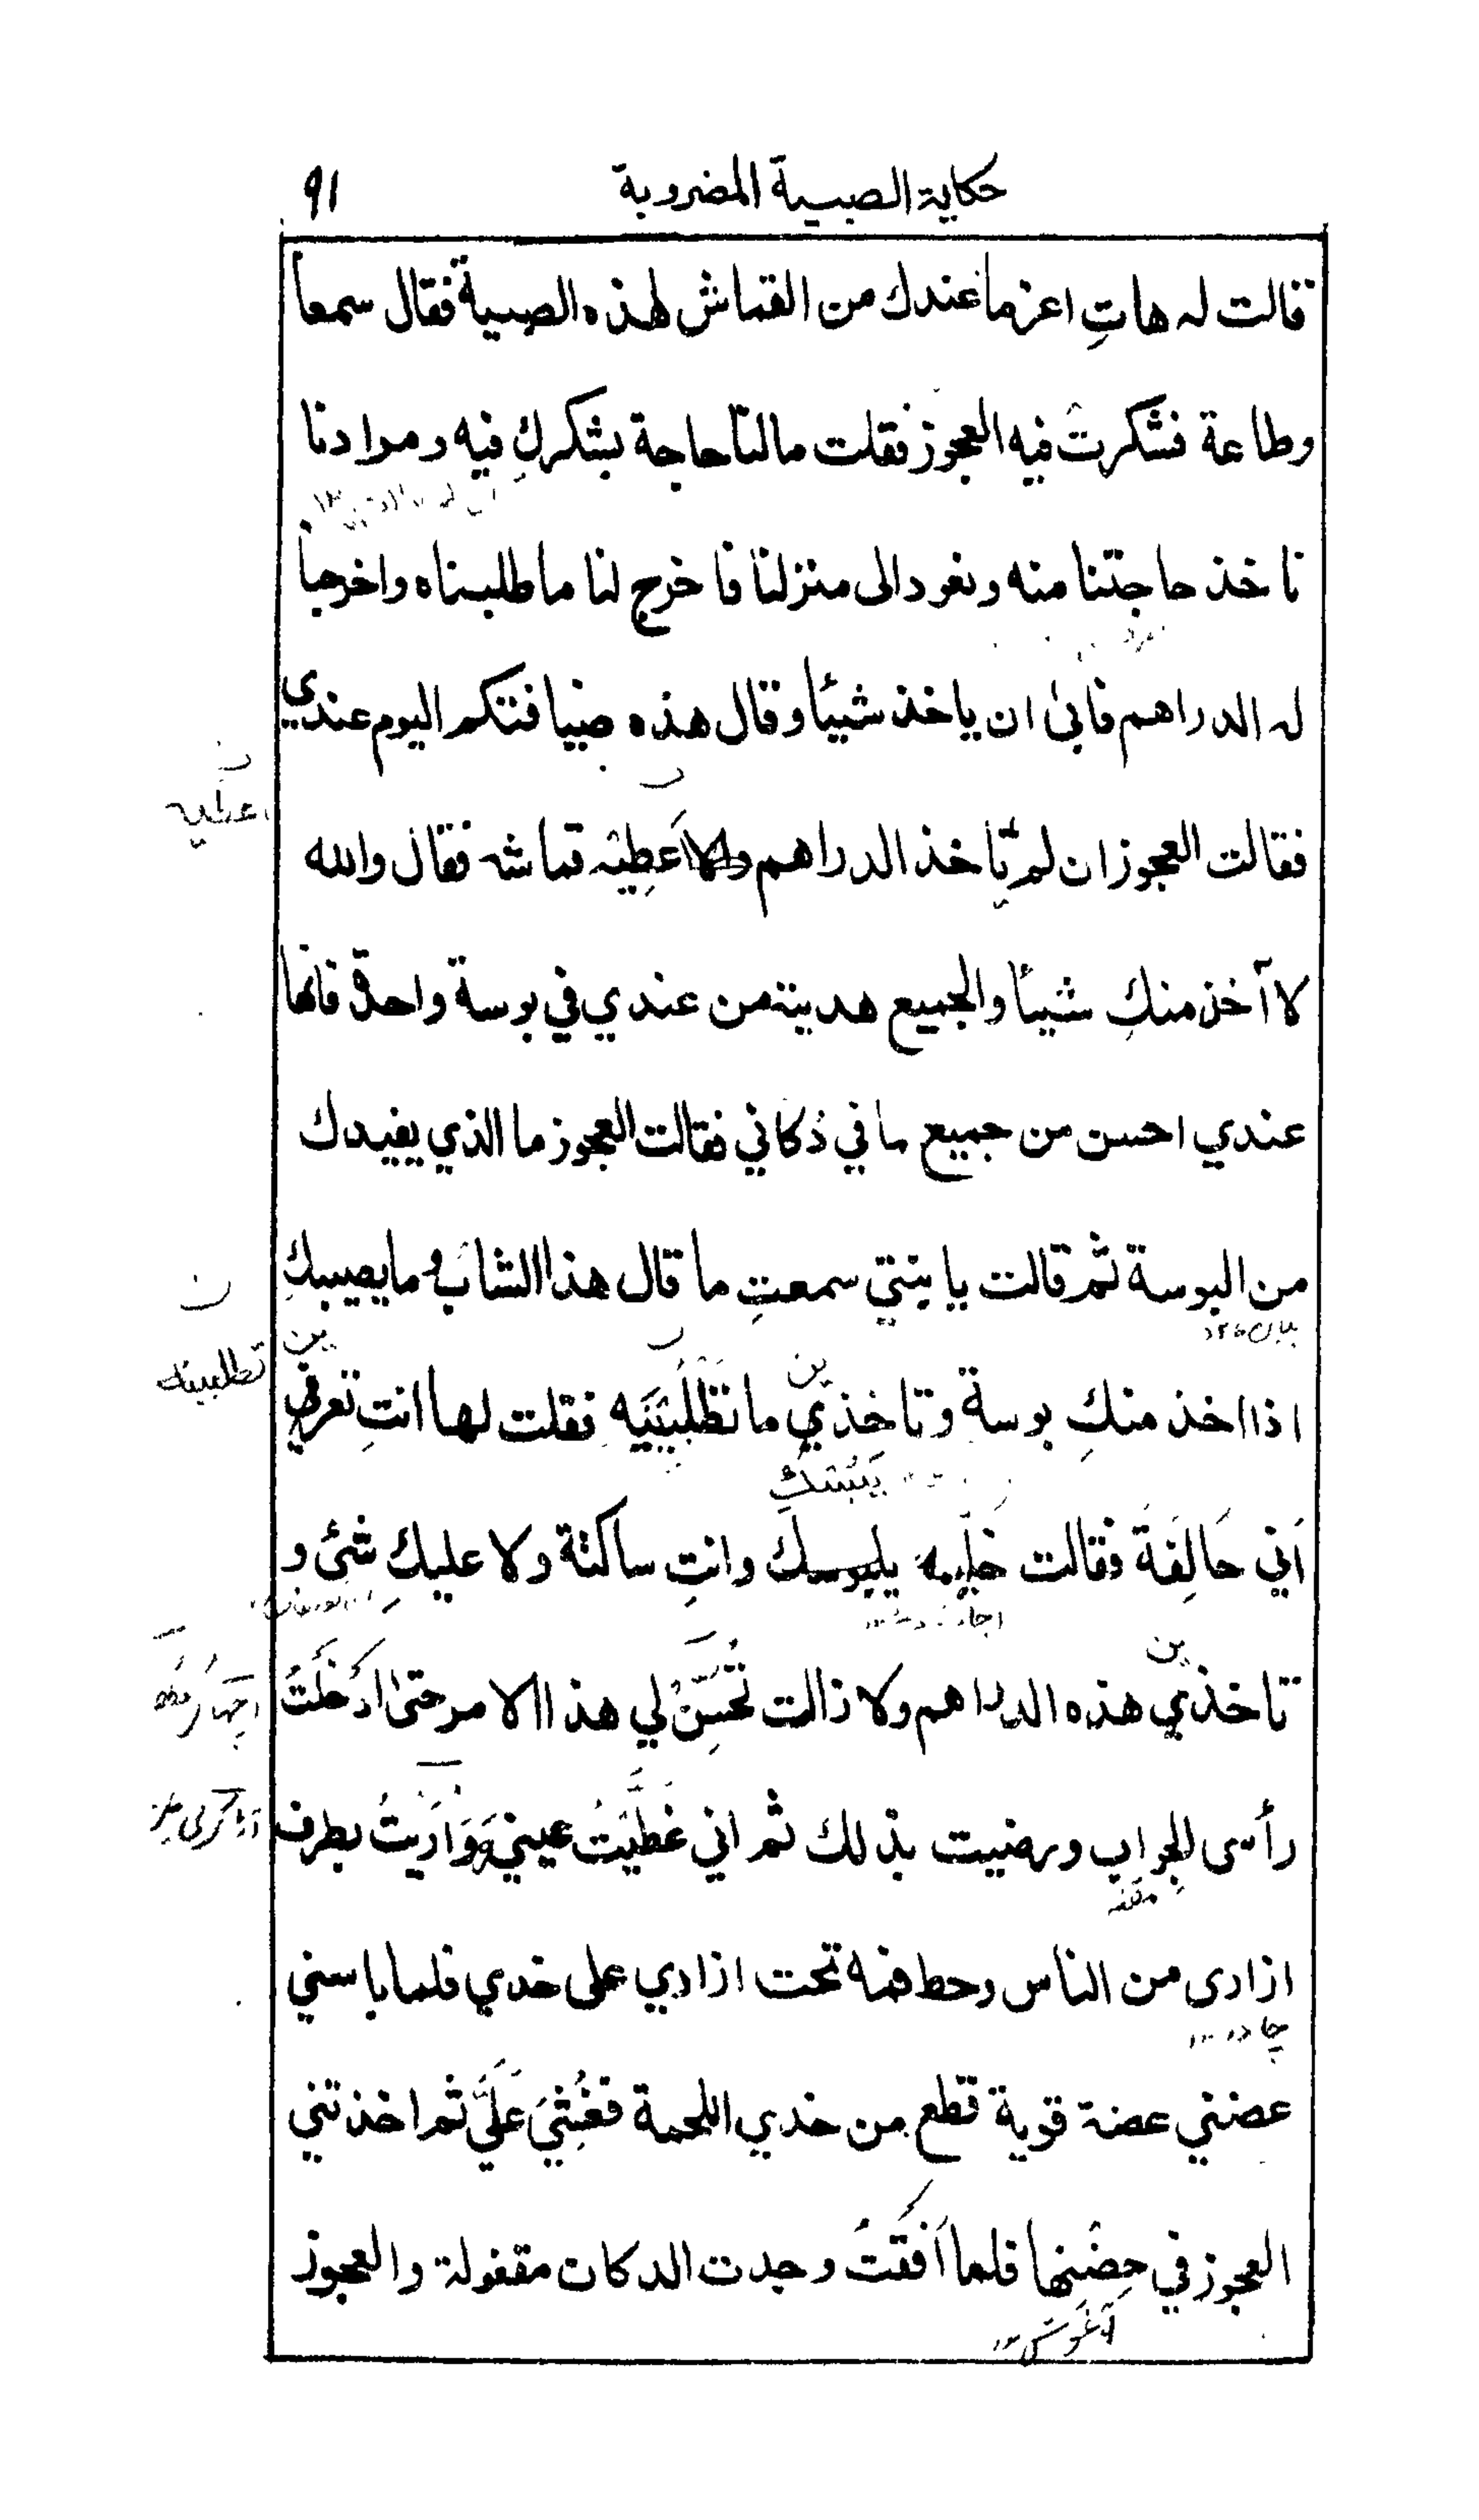 حكاية الصبية المضروبة
٩١
قالت له هاتِ اعز ما عندك من القماش لهذه الصبية فقال سمعا
وطاعة فشكرت فيه العجوز فقلت ما لنا حاجة بشكركِ فيه ومرادنا
ناخذ حاجتنا منه ونعود الى منزلنا فاخرج لنا ما طلبناه واخرجنا
له الدراهم فابى ان ياخذ شيئا وقال هذه ضيافتكم اليوم عندي
اعطيه
فقالت العجوز ان لم ياخذ الدراهم اَعطِيْه قماشه فقال والله
لا آخذ منكِ شيئا والجميع هدية من عندي في بوسة واحدة فانها
عندي احسن من جميع ما في دكاني فقالت العجوز ما الذي يفيدك
من البوسة ثم قالت يا بنتي سمعتِ ما قال هذا الشاب وما يصيبكِ
تطلبينه
اذا اخذ منكِ بوسة وتاخذي ما تطلبينه فقلت لها انتِ تعرفي
اَني حَالِفَة فقالت خليه يبوسك وانتِ ساكتة ولا عليكِ شئ و
تاخذي هذه الدراهم ولا زالت تُحَسِّنُ لي هذا الامر حتى ادْخَلَتْ
رأسى الجراب ورضيت بذلك ثم اني غَطَّيْتُ عيني وَوَارَيتُ بطرف
ازارى من الناس وحط فمه تحت ازاري على خدي فلما باسني
عضني عضة قوية قطع من خدي اللحمة فغُشِيَ عَلَيَّ ثم اخذتني
العجوز في حِضْنها فلما اَفَقْتُ وجدت الدكان مقفولة والعجوز